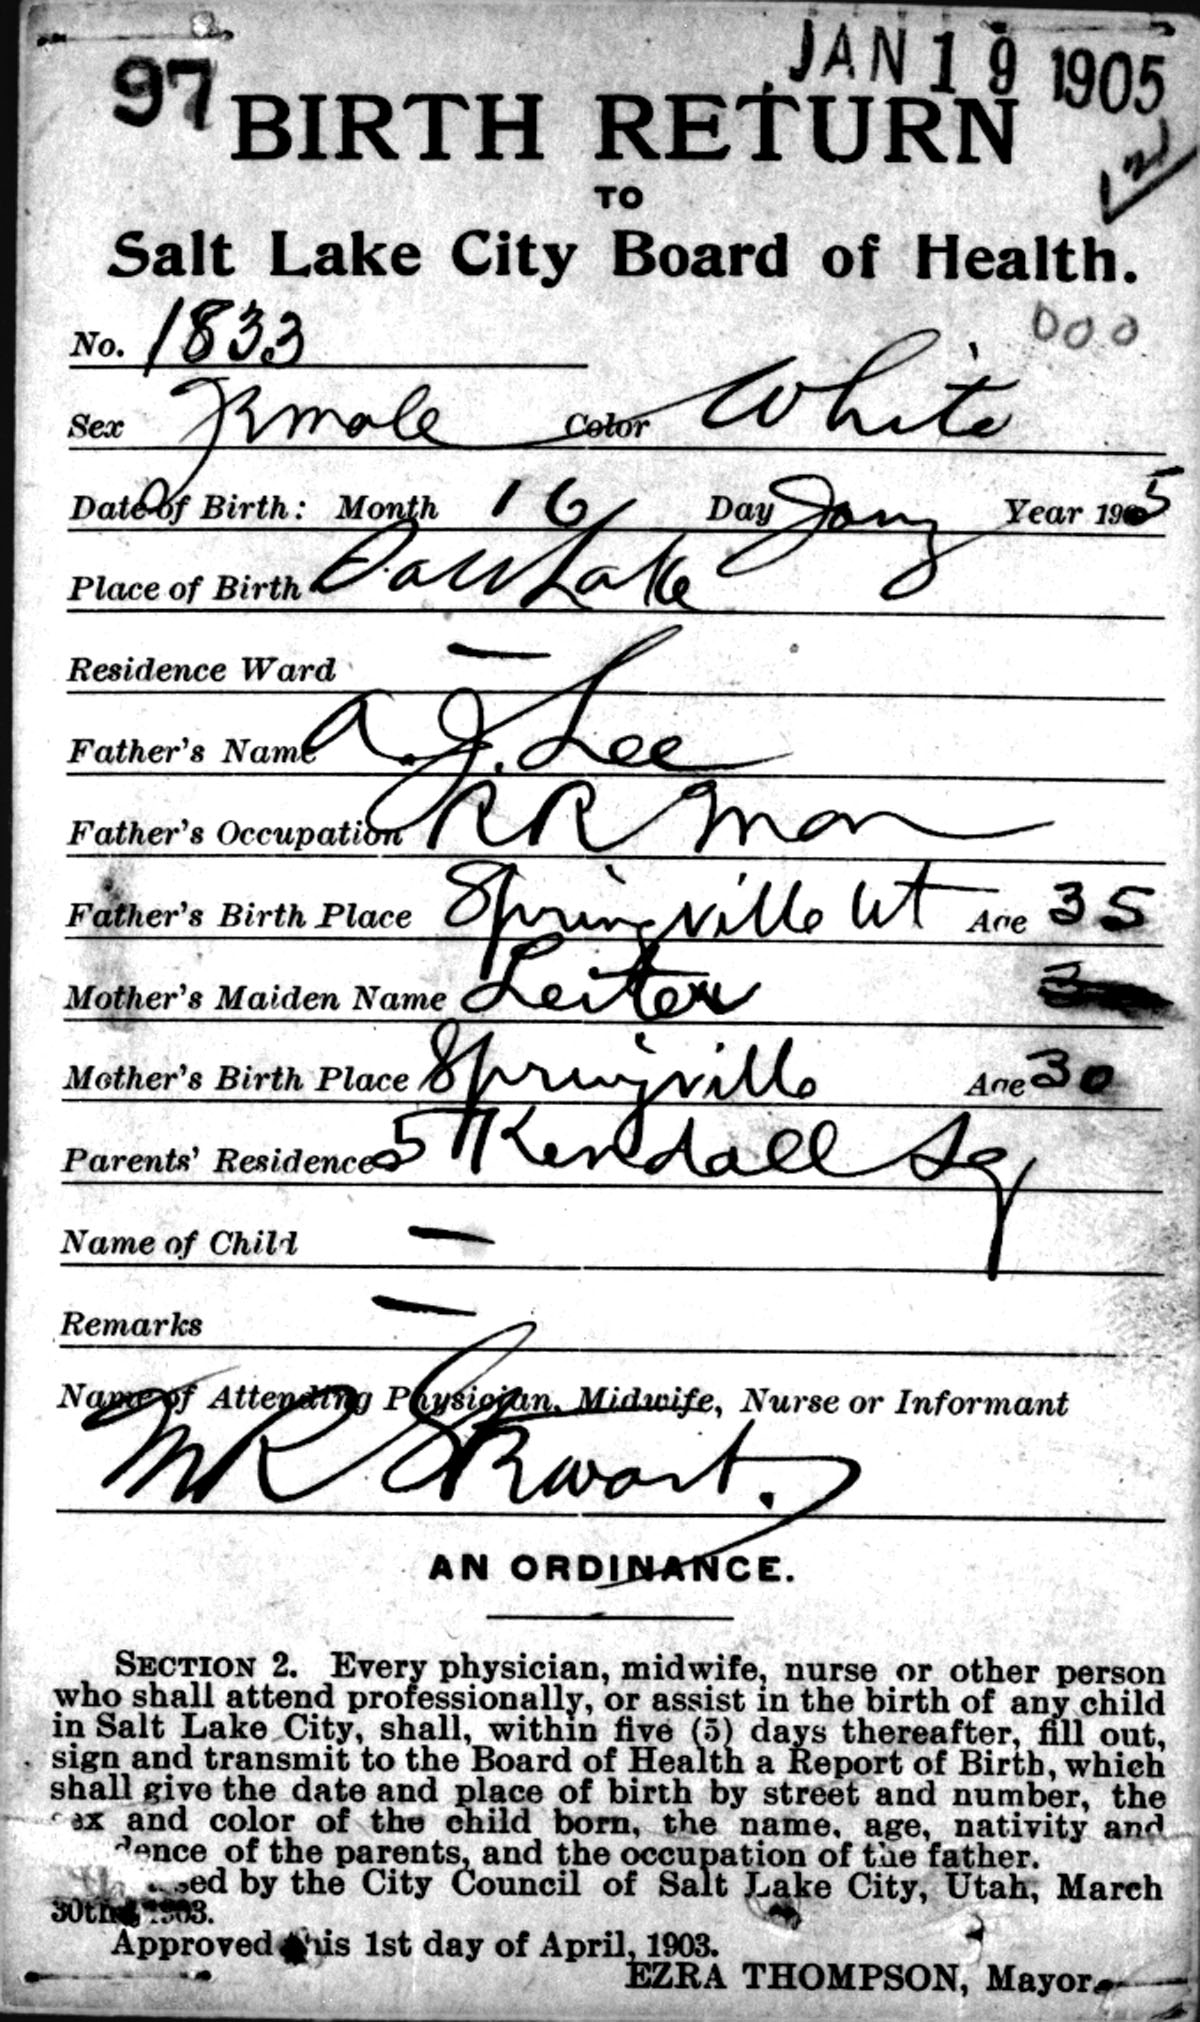 JAN 19 1905
97
BIRTH RETURN
TO
Salt Lake City Board of Health.
000
No. 1833
Sex Female Color White
Date of Birth: Month 16 Day Jany Year 1905
Place of Birth Salt Lake
Residence Ward —
Father's Name A. J. Lee
Father's Occupation RR Man
Father's Birth Place Springville Ut Age 35
Mother's Maiden Name
Mother's Birth Place Springville Age 30
Parents' Residence 57 Kendall Sq
Name of Child —
Remarks —
Name of Attending Physician, Midwife, Nurse or Informant
M R Stewart.
AN ORDINANCE.
SECTION 2. Every physician, midwife, nurse or other person
who shall attend professionally, or assist in the birth of any child
in Salt Lake City, shall, within five (5) days thereafter, fill out,
sign and transmit to the Board of Health a Report of Birth, which
shall give the date and place of birth by street and number, the
sex and color of the child born, the name, age, nativity and
dence of the parents, and the occupation of the father.
sed by the City Council of Salt Lake City, Utah, March
30th, 1903.
Approved this 1st day of April, 1903.
EZRA THOMPSON, Mayor.